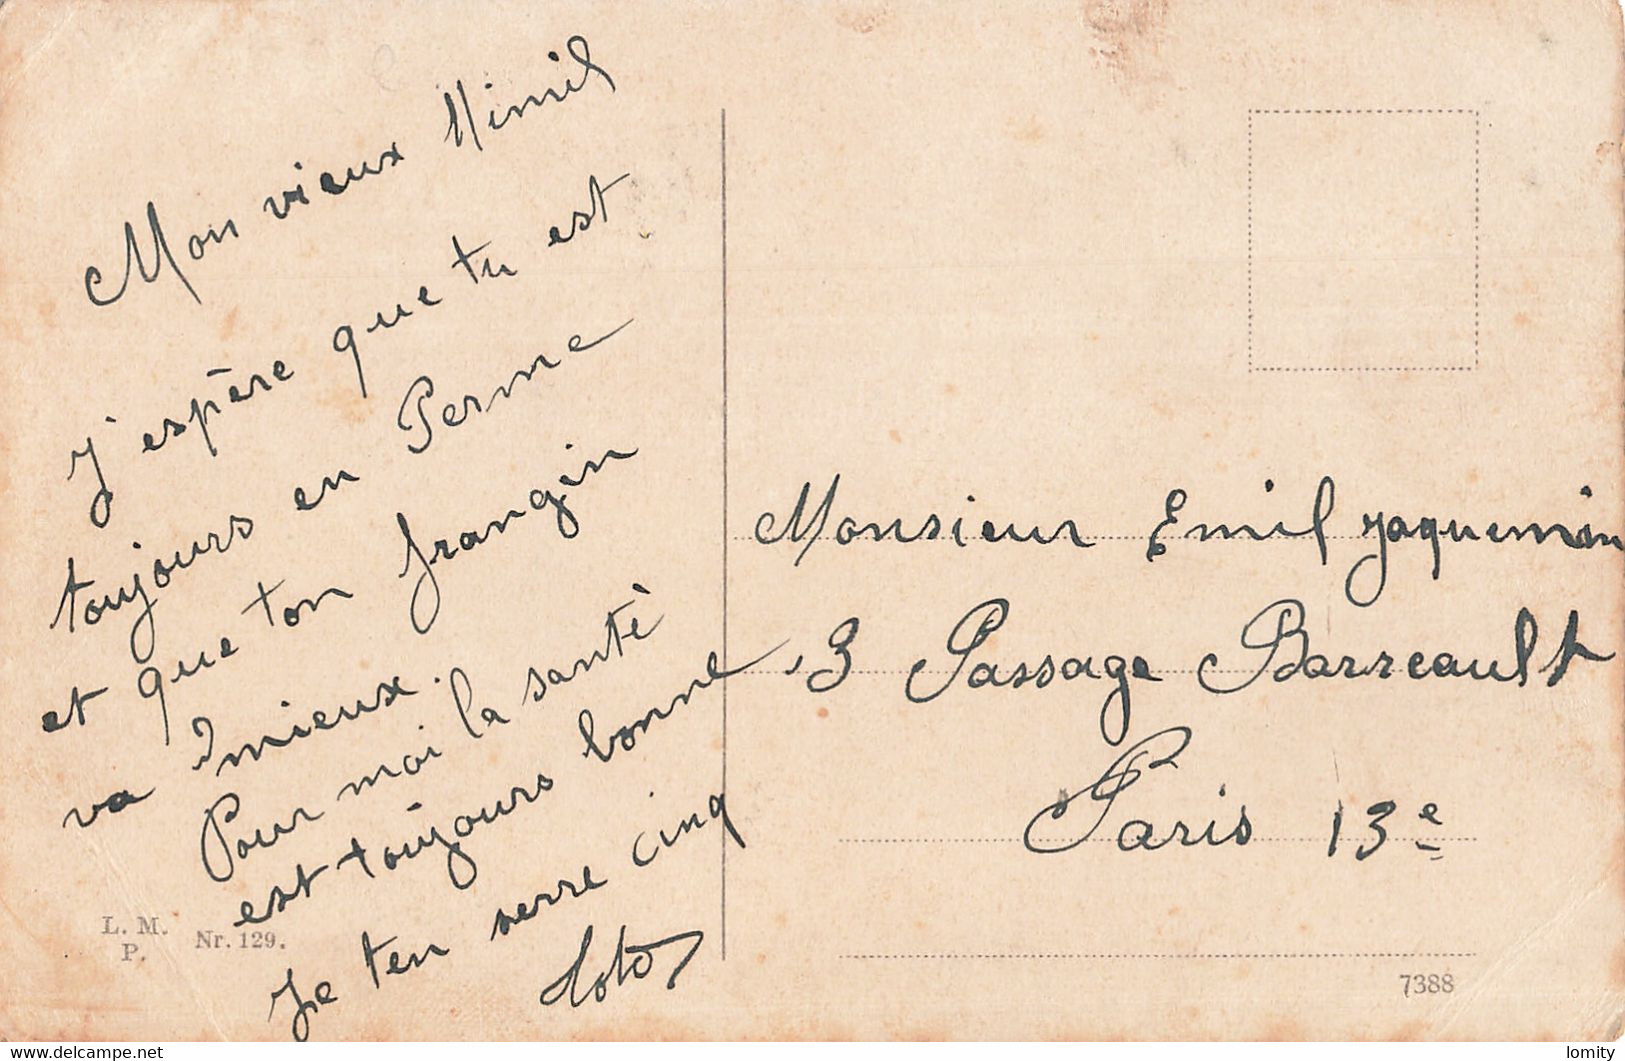 Mon vieux Mimil
J'espère que tu est
toujours en Perme
et que ton frangin
va mieux.
Pour moi la santé
est toujours bonne
Je ten serre cinq
Toto
Monsieur Emil Jaquemin
3 Passage Barreault
Paris 13e
L. M.
P.
Nr. 129.
7388
www.delcampe.net
lomity